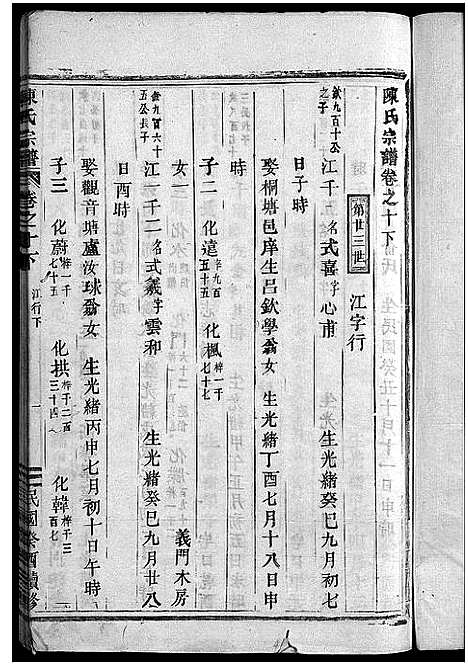 陳氏宗譜卷之十下
第廿三世 江字行
欽九百十公之子 江千一名式喜字心甫 生光緒癸巳九月初七
日子時
娶桐塘邑庠生呂欽學翁女 生光緒丁酉七月十八日申
時
子二 化遠梓九百五十五 化楓梓一千七十七
女一 義門木房
欽九百六十五公長子 江一千二名式義字雲和 生光緒癸巳九月廿八
日酉時
娶觀音塘盧汝球翁女 生光緒丙申七月初十日午時
子三 化蔚梓一千七十五 化拱梓千二百三十四 化韓梓千三百七
陳氏宗譜 卷之十下 江行下 一 民國癸酉續修